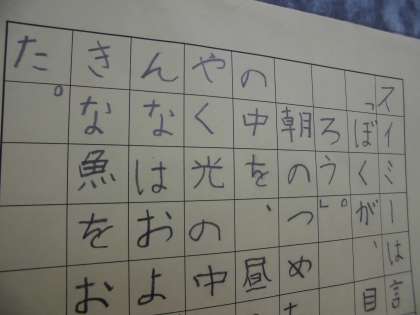 スイミーは言
「ぼくが、目
ろう」。
朝のつめ
の中を、昼
やく光の中
んなはおよ
きな魚をお
た。